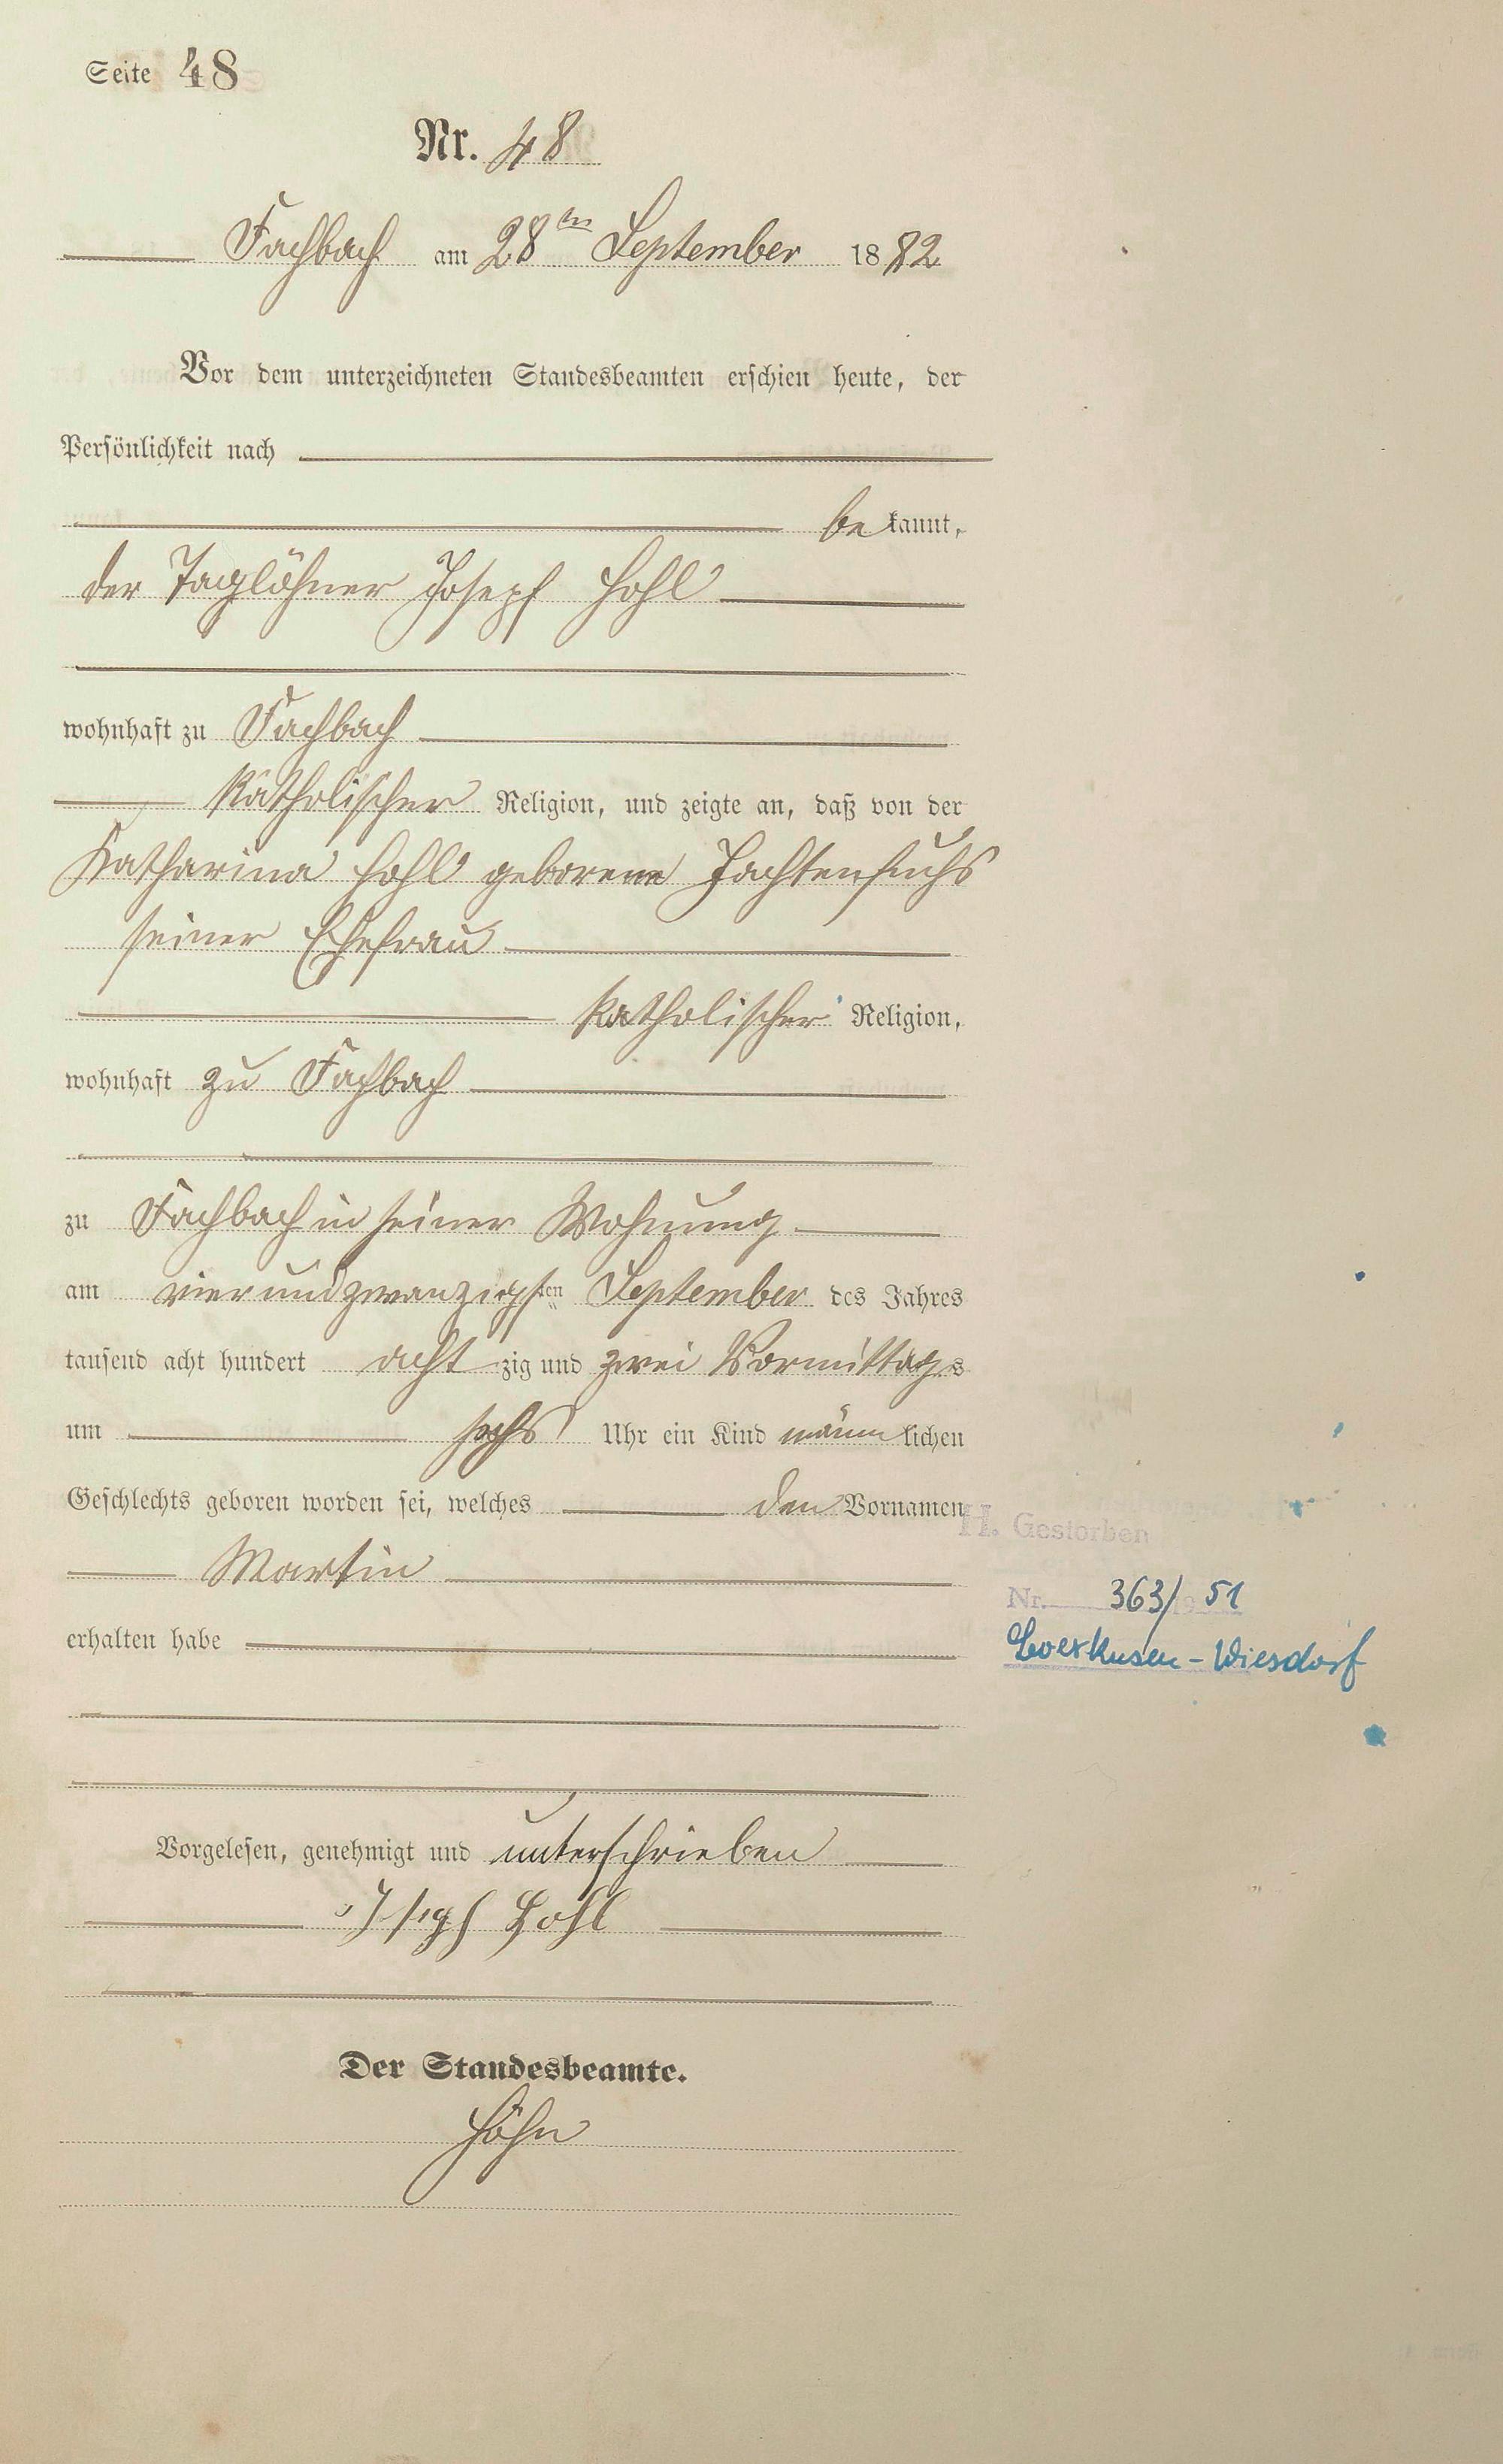 Seite 48
Nr. 48
Fachbach am 28ten September 1882
Vor dem unterzeichneten Standesbeamten erschien heute, der
Persönlichkeit nach
bekannt,
der Taglöhner Joseph Hohl
wohnhaft zu Fachbach
katholischer Religion, und zeigte an, daß von der
Katharina Hohl geborene Jachtenfuchs
seiner Ehefrau
katholischer Religion,
wohnhaft zu Fachbach
zu Fachbach in seiner Wohnung
am vierundzwanzigsten September des Jahres
tausend acht hundert achtzig und zwei Vormittags
um sechs Uhr ein Kind männlichen
Geschlechts geboren worden sei, welches den Vornamen
H. Gestorben
Martin
Nr. 363/1951
erhalten habe
Leverkusen-Wiesdorf
Vorgelesen, genehmigt und unterschrieben
Joseph Hohl
Der Standesbeamte.
Höhn